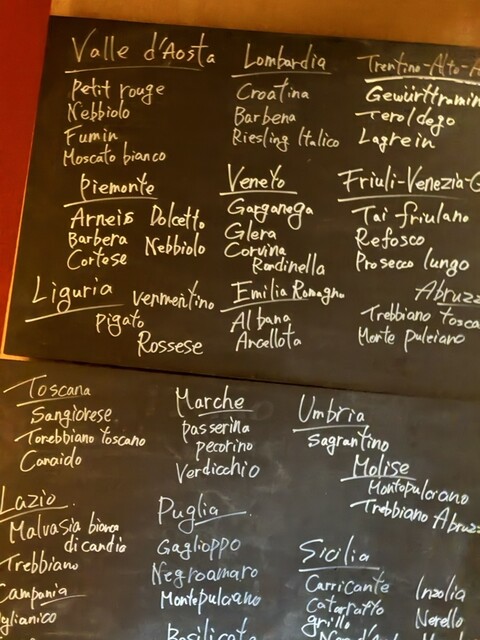 Valle d'Aosta
Petit rouge
Nebbiolo
Fumin
Moscato bianco
Lombardia
Croatina
Barbena
Riesling Italico
Trentino-Alto-A
Gewürttramin
Teroldego
Lagrein
Piemonte
Arneis Dolcetto
Barbera Nebbiolo
Cortese
Veneto
Garganega
Glera
Corvina
Rondinella
Friuli-Venezia-G
Tai friulano
Refosco
Prosecco lungo
Liguria
Vermentino
Pigato
Rossese
Emilia Romagna
Albana
Ancellota
Abruzz
Trebbiano tosca
Monte pulciano
Toscana
Sangiorese
Torebbiano toscano
Canaido
Marche
passerina
pecorino
Verdicchio
Umbria
Sagrantino
Molise
Montopulciano
Trebbiano Abruzz
Lazio
Malvasia bianca
di candia
Trebbiano
Puglia
Gaglioppo
Negroamaro
Montepulciano
Sicilia
Carricante Inzolia
Catarratto
grillo Nerello
Campania
glianico
Basilicata